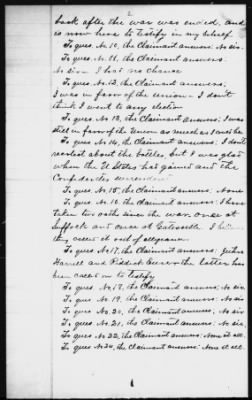 2
back after the war was ended, and
is now here to testify in my behalf.
To ques. No. 10, the Claimant answers: No sir.
To ques. No. 11, the Claimant answers:
No sir. I had no chance
To ques. No. 12, the Claimant answers;
I was in favor of the union. I don't
think I went to any election
To ques. No. 13, the Claimant answers; I was
still in favor of the Union as much as I could be.
To ques. No. 14, the Claimant answers: I don't
recollect about the battles, but I was glad
when the U States had gained and the
Confederates surrendered
To ques. No. 15, the Claimant answers: None
To ques. No. 16, the claimant answers: I have
taken two oaths since the war, once at
Suffolk and once at Gatesville. I
they were oath of allegiance.
To ques. No. 17, the Claimant answers:
Harrell and Riddick the latter has
been called on to testify
To ques. No. 18, the Claimant answers; No sir,
To ques. No. 19, the Claimant answers: No sir.
To ques. No. 20, the Claimant answers; No sir,
To ques. No. 21, the Claimant answers; No sir,
To ques. No. 22, the Claimant answers; None at all.
To ques. No. 24, the Claimant answers: None at all.